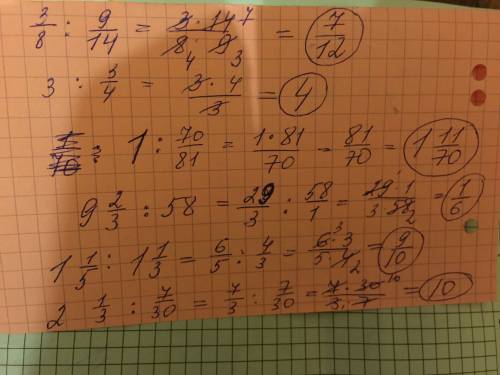 3/8 : 9/14 = 3·14 7/8 4·9 3 = 7/12
3 : 3/4 = 3·4/3 = 4
1 : 70/81 = 1·81/70 = 81/70 = 1 11/70
9 2/3 : 58 = 29/3 : 58/1 = 29·1/3·58 2 = 1/6
1 1/5 : 1 1/3 = 6/5 : 4/3 = 6 3·3/5·4 2 = 9/10
2 1/3 : 7/30 = 7/3 : 7/30 = 7·30 10/3·7 = 10